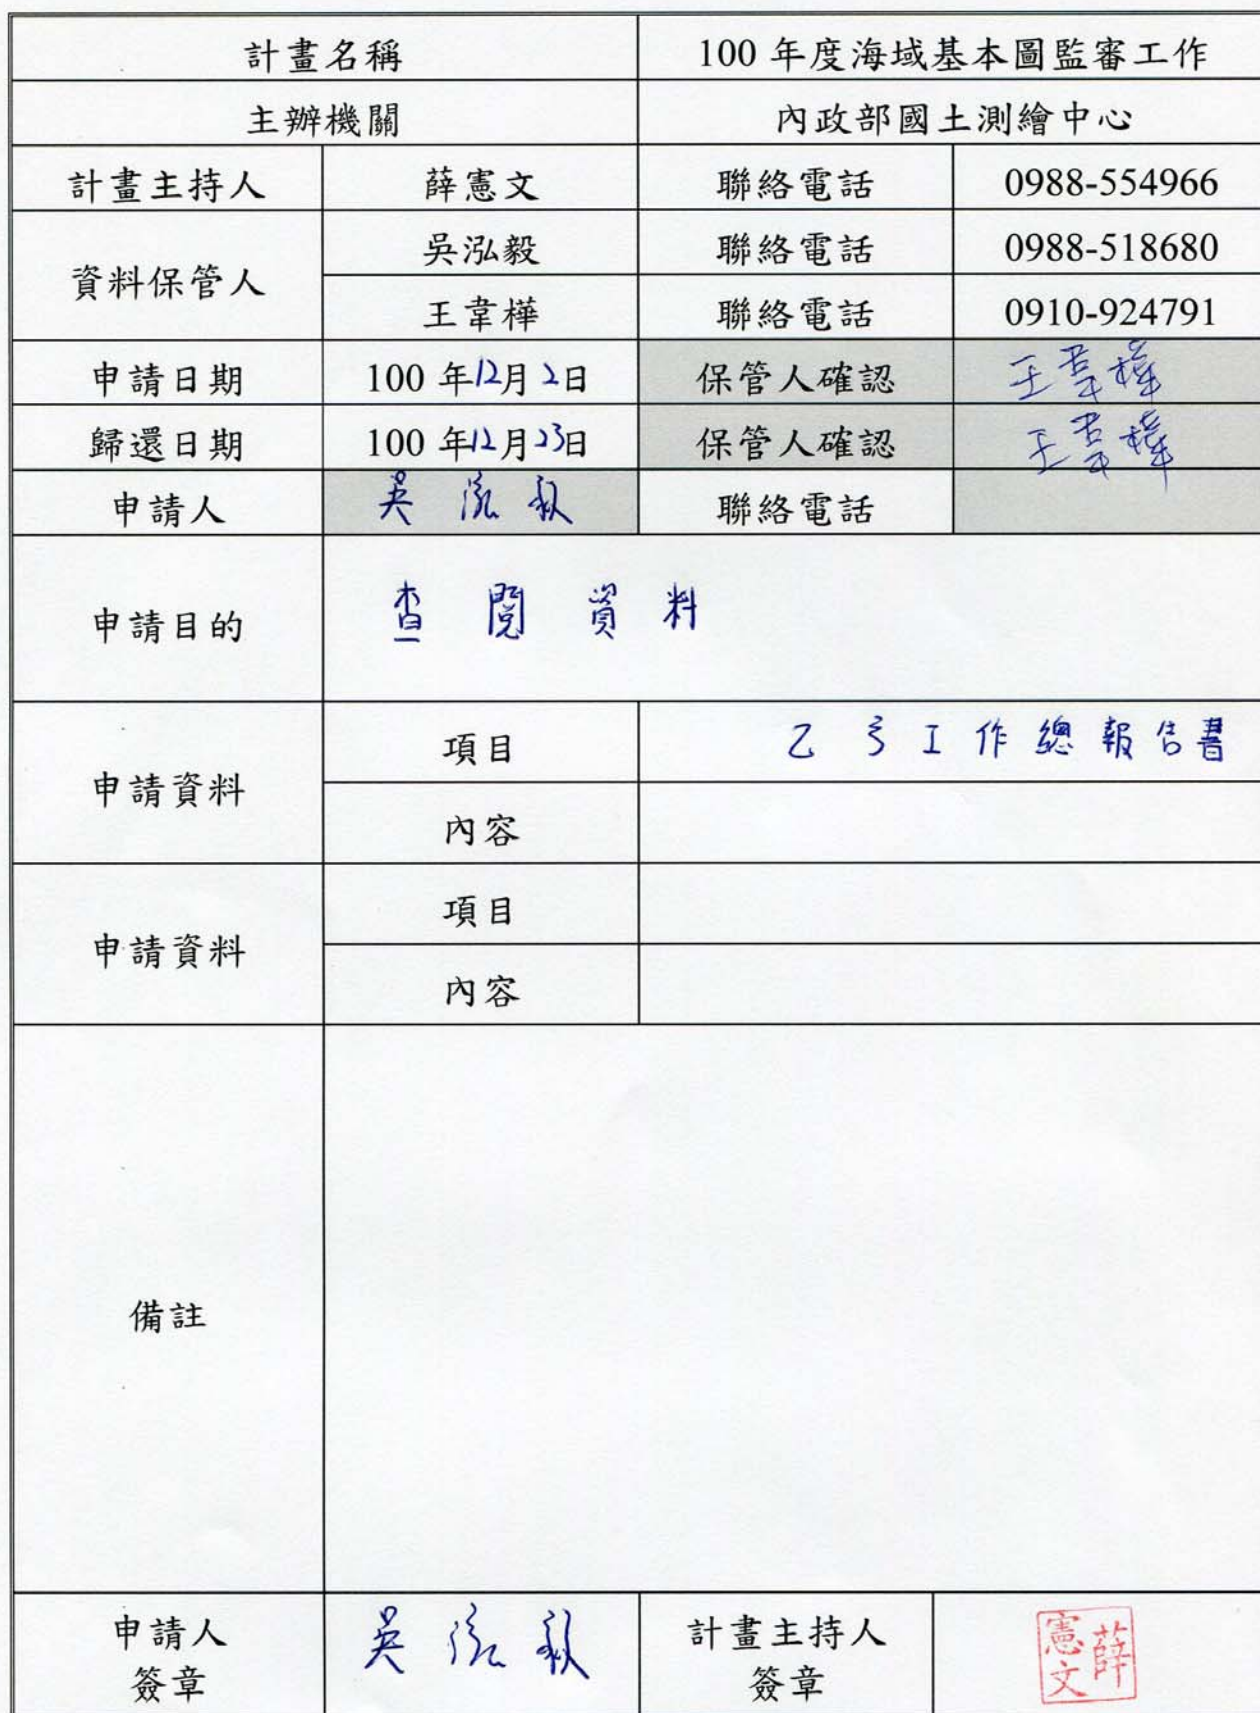 計畫名稱 100 年度海域基本圖監審工作
主辦機關 內政部國土測繪中心
計畫主持人 薛憲文 聯絡電話 0988-554966
資料保管人 吳泓毅 聯絡電話 0988-518680
王韋樺 聯絡電話 0910-924791
申請日期 100 年12月2日 保管人確認 王韋樺
歸還日期 100 年12月23日 保管人確認 王韋樺
申請人 吳泓毅 聯絡電話
申請目的 查閱資料
申請資料 項目 乙 工作總報告書
內容
申請資料 項目
內容
備註
申請人 簽章 吳泓毅 計畫主持人 簽章 薛憲文